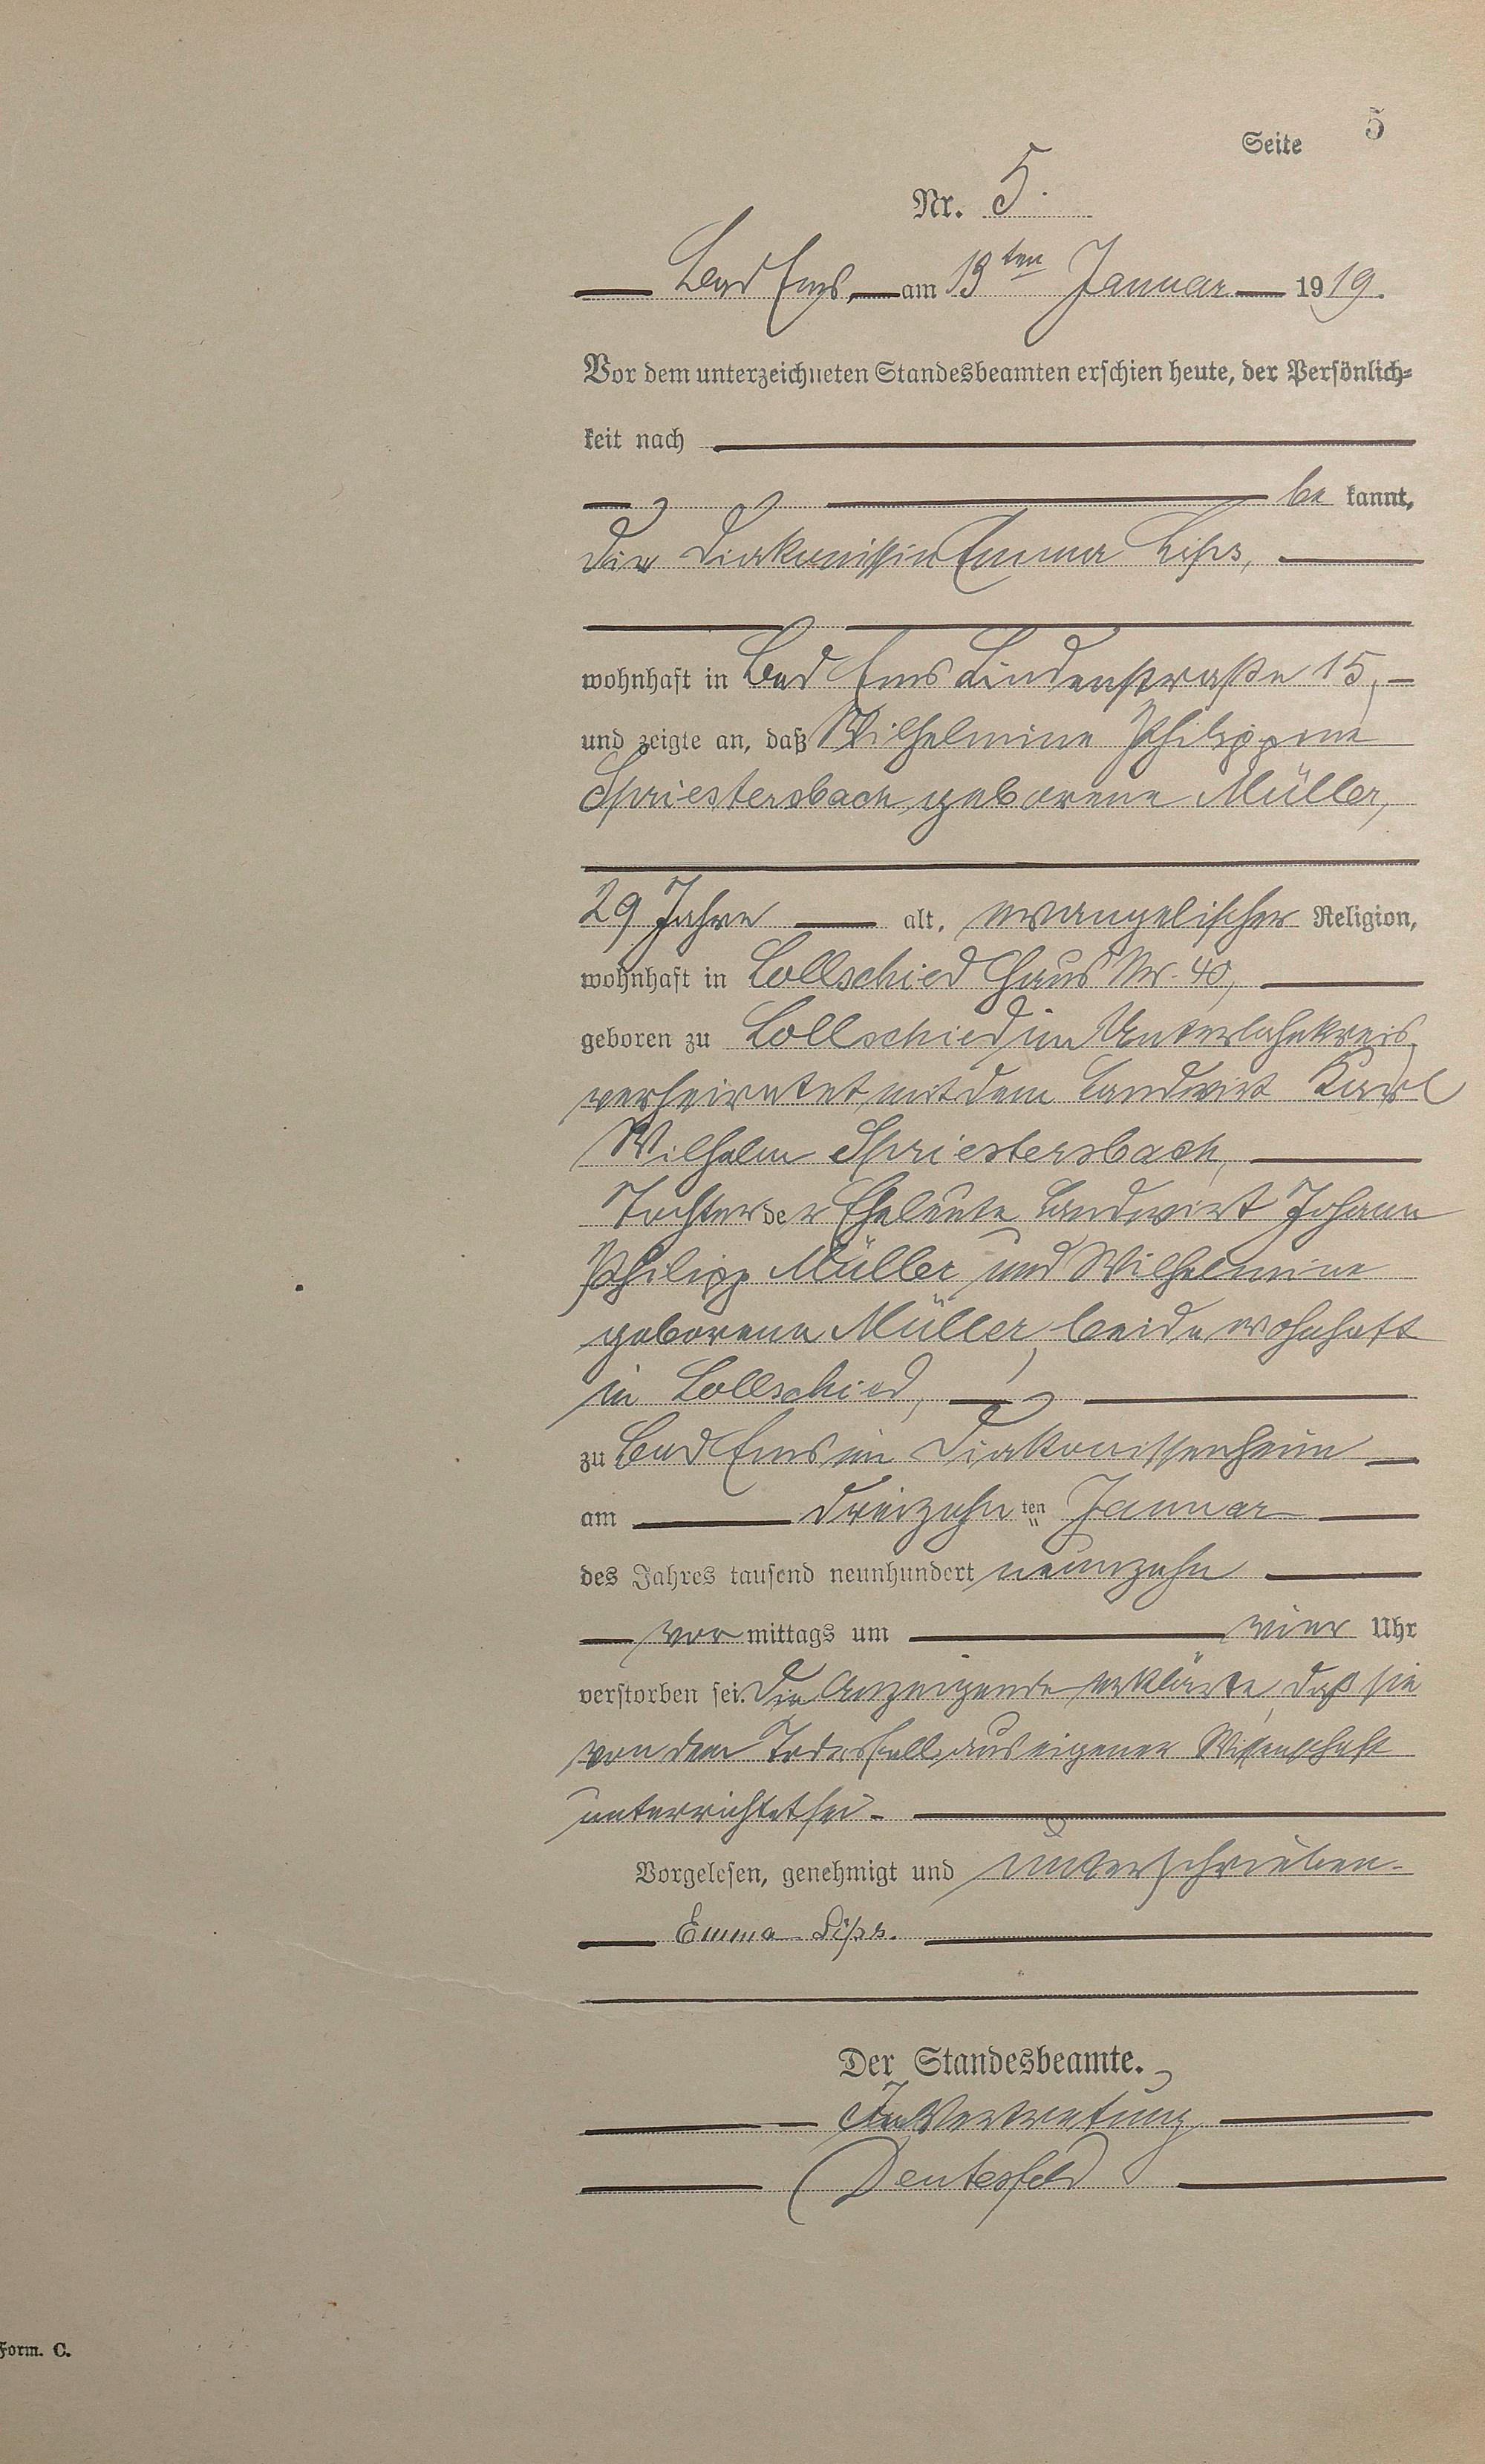 Seite 5
Nr. 5.
Bad Ems, am 13ten Januar 1919.
Vor dem unterzeichneten Standesbeamten erschien heute, der Persönlich-
keit nach
be kannt,
die Diakonissin Emma Lips,
wohnhaft in Bad Ems Lindenstraße 15,
und zeigte an, daß Wilhelmine Philippine
Spriestersbach geborene Müller,
29 Jahre alt, evangelischer Religion,
wohnhaft in Lollschied Haus Nr. 40,
geboren zu Lollschied im Unterlahnkreis,
verheiratet mit dem Landwirt Karl
Wilhelm Spriestersbach,
Tochter der Eheleute Landwirt Johann
Philipp Müller und Wilhelmine
geborene Müller, beide wohnhaft
in Lollschied,
zu Bad Ems im Diakonissenheim
am dreizehnten Januar
des Jahres tausend neunhundert neunzehn
vor mittags um vier Uhr
verstorben sei. Die Anzeigende erklärte, daß sie
von dem Todesfall aus eigener Wissenschaft
unterrichtet sei.
Vorgelesen, genehmigt und unterschrieben.
Emma Lips.
Der Standesbeamte.
In Vertretung
Form. C.